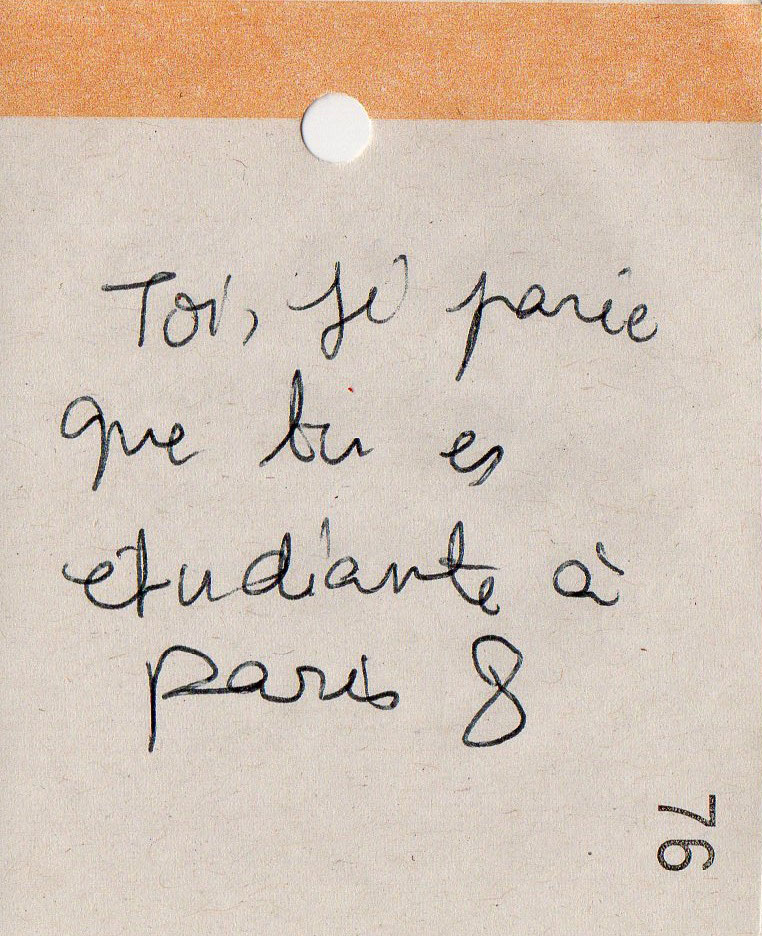 Toi, je parie
que tu es
étudiante à
paris 8
76